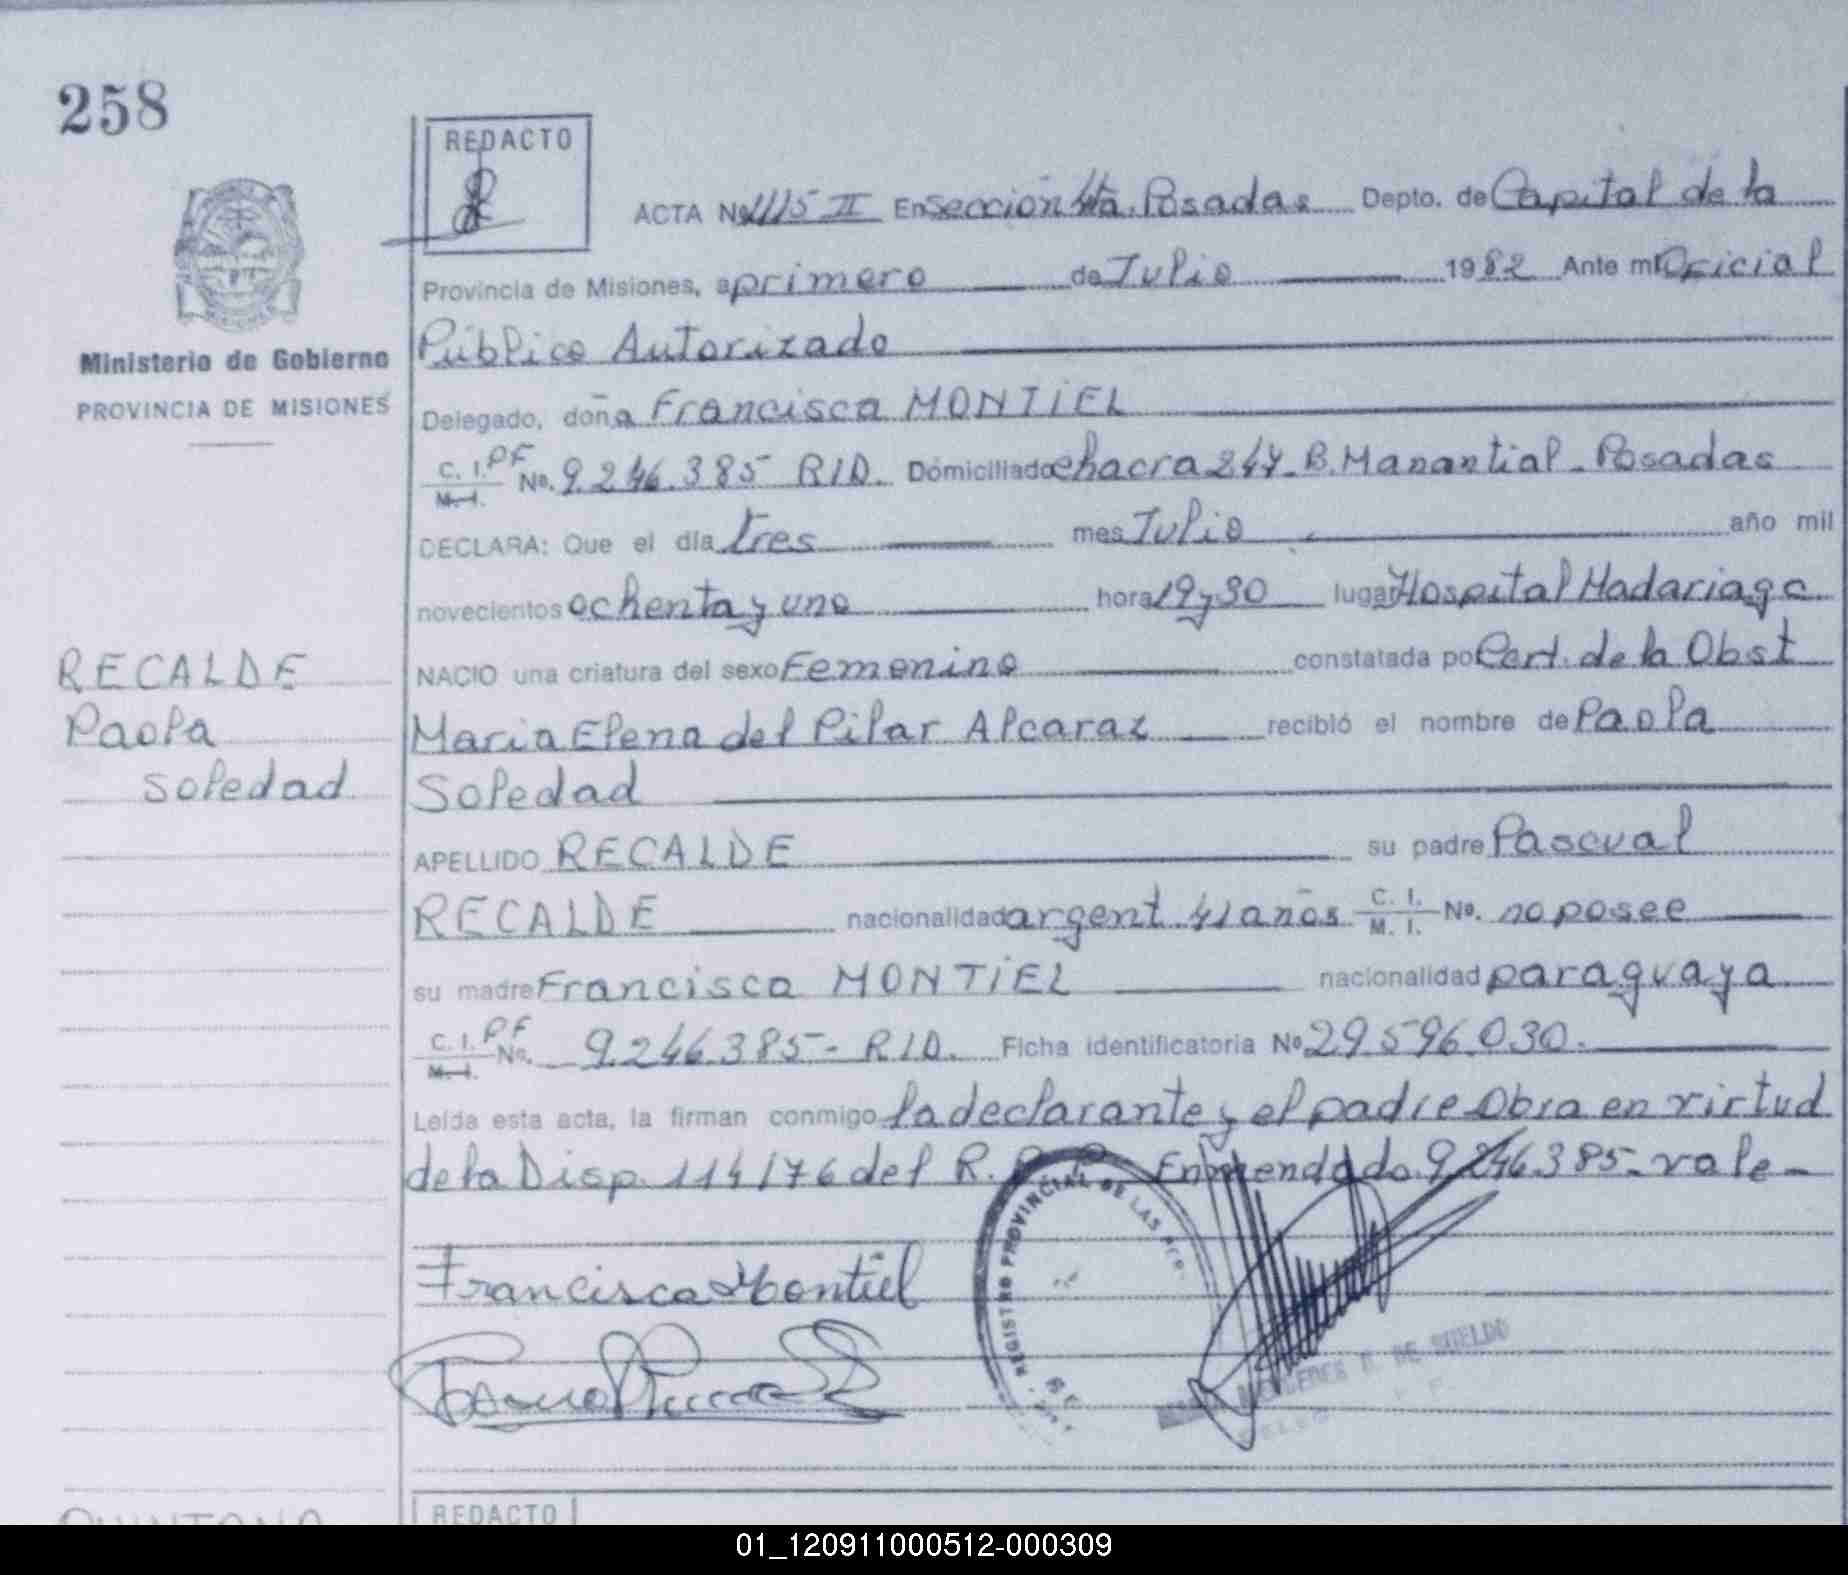 258
REDACTO
ACTA No 1115 II En Sección 4ta. Posadas Depto. de Capital de la
Provincia de Misiones, a primero de Julio 1982 Ante mi Oficial
Público Autorizado
Ministerio de Gobierno
PROVINCIA DE MISIONES
Delegado, doña Francisca MONTIEL
C. I. PF
M. I. No. 9.246.385 RID. Domiciliado chacra 247 - B. Manantial - Posadas
DECLARA: Que el día tres mes Julio año mil
novecientos ochenta y uno hora 19 y 30 lugar Hospital Madariaga
RECALDE
Paola
Soledad
NACIO una criatura del sexo Femenino constatada po Cert. de la Obst
Maria Elena del Pilar Alcaraz recibió el nombre de Paola
Soledad
APELLIDO RECALDE su padre Pascual
RECALDE nacionalidad argent. 41 años C. I. M. I. No. no posee
su madre Francisca MONTIEL nacionalidad paraguaya
C. I. PF
M. I. No. 9.246.385 - RID. Ficha identificatoria No 29.596.030.
Leída esta acta, la firman conmigo la declarante y el padre Obra en virtud
de la Disp. 114/76 del R. Enmendado 9.246.385 - vale -
Francisca Montiel
REGISTRO PROVINCIAL DE LAS
MERCEDES DE SUELDO
REDACTO
QUINTANA
01_120911000512-000309